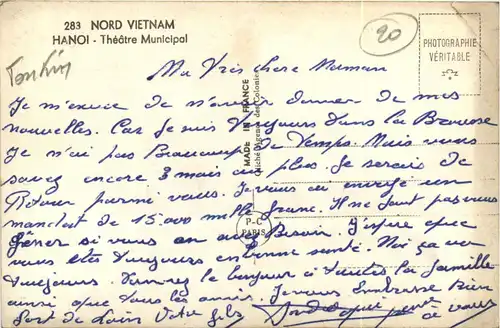 283 NORD VIETNAM
HANOI - Théâtre Municipal
20
PHOTOGRAPHIE
VÉRITABLE
Tonkin
MADE IN FRANCE
Cliché Agence des Colonies
P-C
PARIS
Ma Très chere Maman
Je m'excuse de n'avoir donner de mes
nouvelles. Car Je suis Toujours dans la Brousse
Je n'ai pas Beaucoup de Temps. Mais vous
savez encore 3 mois au plus. Je serais de
Retour parmi vous. Je vous ai envoyé un
mandat de 15000 mille franc. Il ne faut pas vous
gener si vous en avez Besoin. J'espere que
vous etes Toujours en bonne santé. Moi ça va
Toujours. Donnez le bonjour à toutes la famille
ainsi que tous les amis. Je vous Embrasse Bien
Fort de Loin Votre fils qui pense
à vous